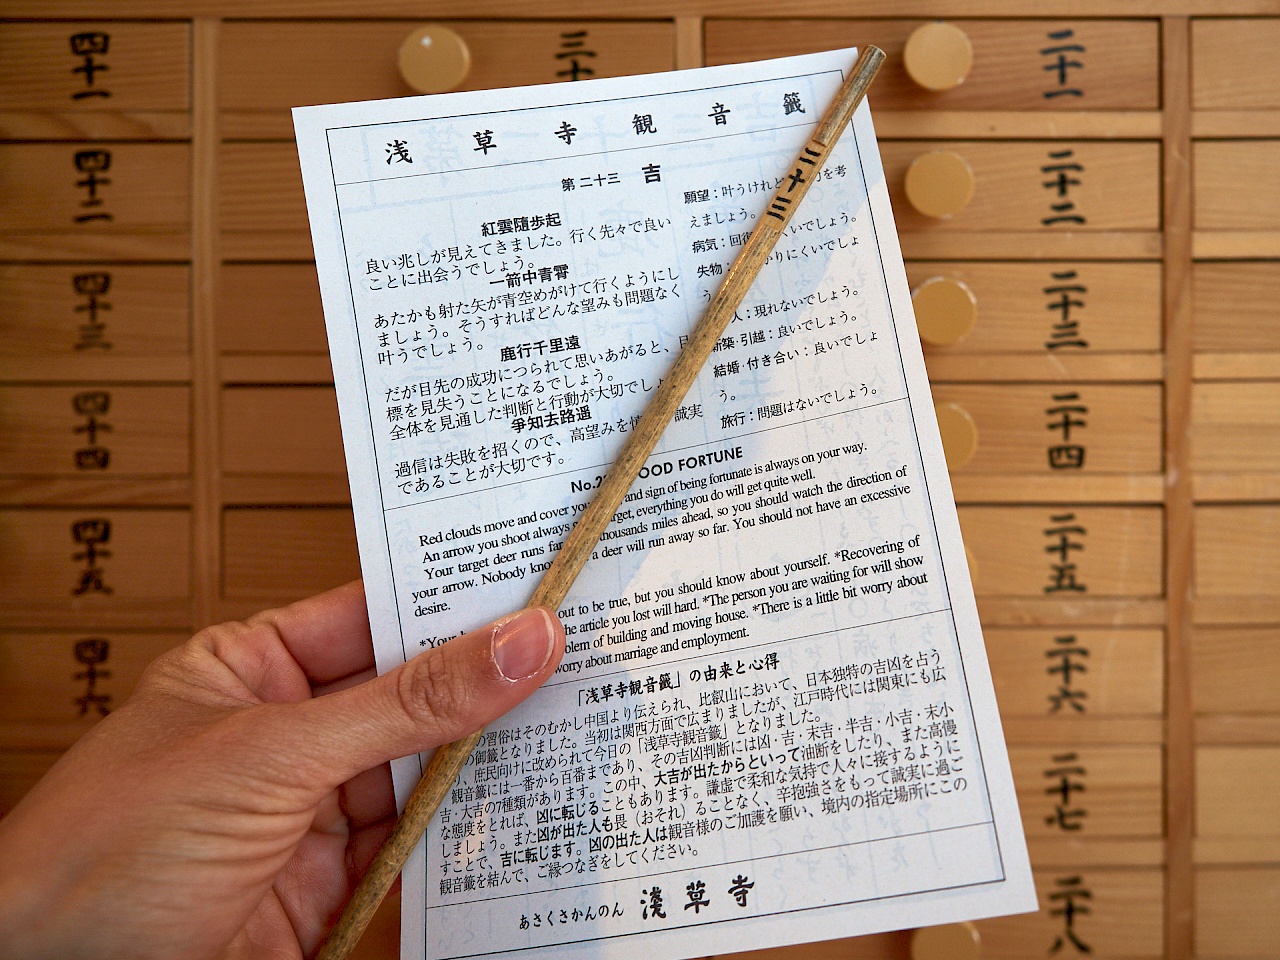 四十一
四十二
四十三
四十四
四十五
四十六
三十
二十一
二十二
二十三
二十四
二十五
二十六
二十七
二十八
二十三
浅草寺観音籤
第二十三 吉
紅雲随歩起
良い兆しが見えてきました。行く先々で良い
ことに出会うでしょう。
一箭中青霄
あたかも射た矢が青空めがけて行くようにし
ましょう。そうすればどんな望みも問題なく
叶うでしょう。
鹿行千里遠
だが目先の成功につられて思いあがると、目
標を見失うことになるでしょう。
全体を見通した判断と行動が大切でしょ
争知去路遥
過信は失敗を招くので、高望みを 誠実
であることが大切です。
願望：叶うけれど を考
えましょう。
病気：回 くいでしょう。
失物： かりにくいでしょ
う
人：現れないでしょう。
新築・引越：良いでしょう。
結婚・付き合い：良いでしょ
う。
旅行：問題はないでしょう。
No.2 OOD FORTUNE
Red clouds move and cover you and sign of being fortunate is always on your way.
An arrow you shoot always target, everything you do will get quite well.
Your target deer runs far thousands miles ahead, so you should watch the direction of
your arrow. Nobody know a deer will run away so far. You should not have an excessive
desire.
*Your out to be true, but you should know about yourself. *Recovering of
the article you lost will hard. *The person you are waiting for will show
blem of building and moving house. *There is a little bit worry about
worry about marriage and employment.
「浅草寺観音籤」の由来と心得
の習俗はそのむかし中国より伝えられ、比叡山において、日本独特の吉凶を占う
の御籤となりました。当初は関西方面で広まりましたが、江戸時代には関東にも広
り、庶民向けに改められて今日の「浅草寺観音籤」となりました。
観音籤には一番から百番まであり、その吉凶判断には凶・吉・末吉・半吉・小吉・末小
吉・大吉の7種類があります。この中、大吉が出たからといって油断をしたり、また高慢
な態度をとれば、凶に転じることもあります。謙虚で柔和な気持で人々に接するように
しましょう。また凶が出た人も畏（おそれ）ることなく、辛抱強さをもって誠実に過ご
すことで、吉に転じます。凶の出た人は観音様のご加護を願い、境内の指定場所にこの
観音籤を結んで、ご縁つなぎをしてください。
あさくさかんのん 淺草寺